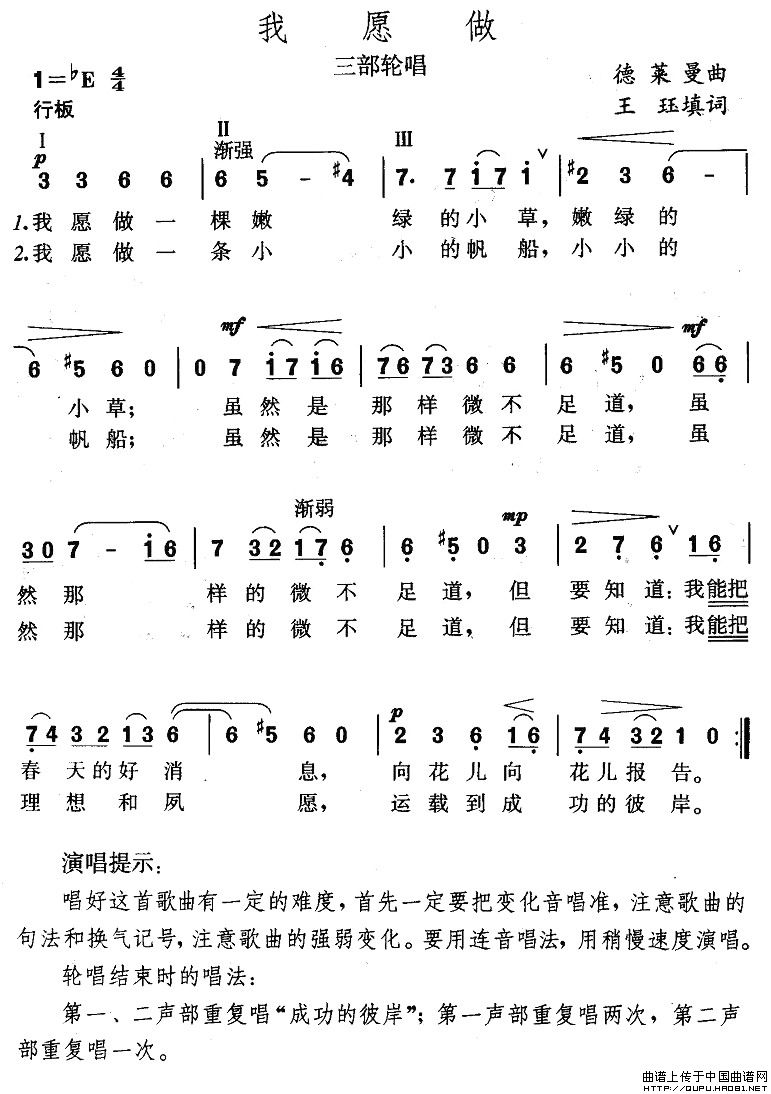 我愿做
三部轮唱
1=♭E 4/4
德莱曼曲
行板
王珏填词
Ⅰ Ⅱ Ⅲ
p 渐强
3 3 6 6 | 6 5 - #4 | 7. 7 i 7 i ∨ | #2 3 6 - |
1.我愿做一棵嫩 绿的小草，嫩绿的
2.我愿做一条小 小的帆船，小小的
mf mf
6 #5 6 0 | 0 7 i 7 i 6 | 7 6 7 3 6 6 | 6 #5 0 6 6 |
小草； 虽然是那样微不足道， 虽
帆船； 虽然是那样微不足道， 虽
渐弱 mp
3 0 7 - i 6 | 7 3 2 1 7 6 | 6 #5 0 3 | 2 7 6 ∨ 1 6 |
然那 样的微不足道，但要知道：我能把
然那 样的微不足道，但要知道：我能把
p
7 4 3 2 1 3 6 | 6 #5 6 0 | 2 3 6 1 6 | 7 4 3 2 1 0 :|
春天的好消 息， 向花儿向花儿报告。
理想和夙 愿， 运载到成功的彼岸。
演唱提示：
唱好这首歌曲有一定的难度，首先一定要把变化音唱准，注意歌曲的
句法和换气记号，注意歌曲的强弱变化。要用连音唱法，用稍慢速度演唱。
轮唱结束时的唱法：
第一、二声部重复唱“成功的彼岸”；第一声部重复唱两次，第二声
部重复唱一次。
曲谱上传于中国曲谱网
HTTP://QUPU.HAO81.NET